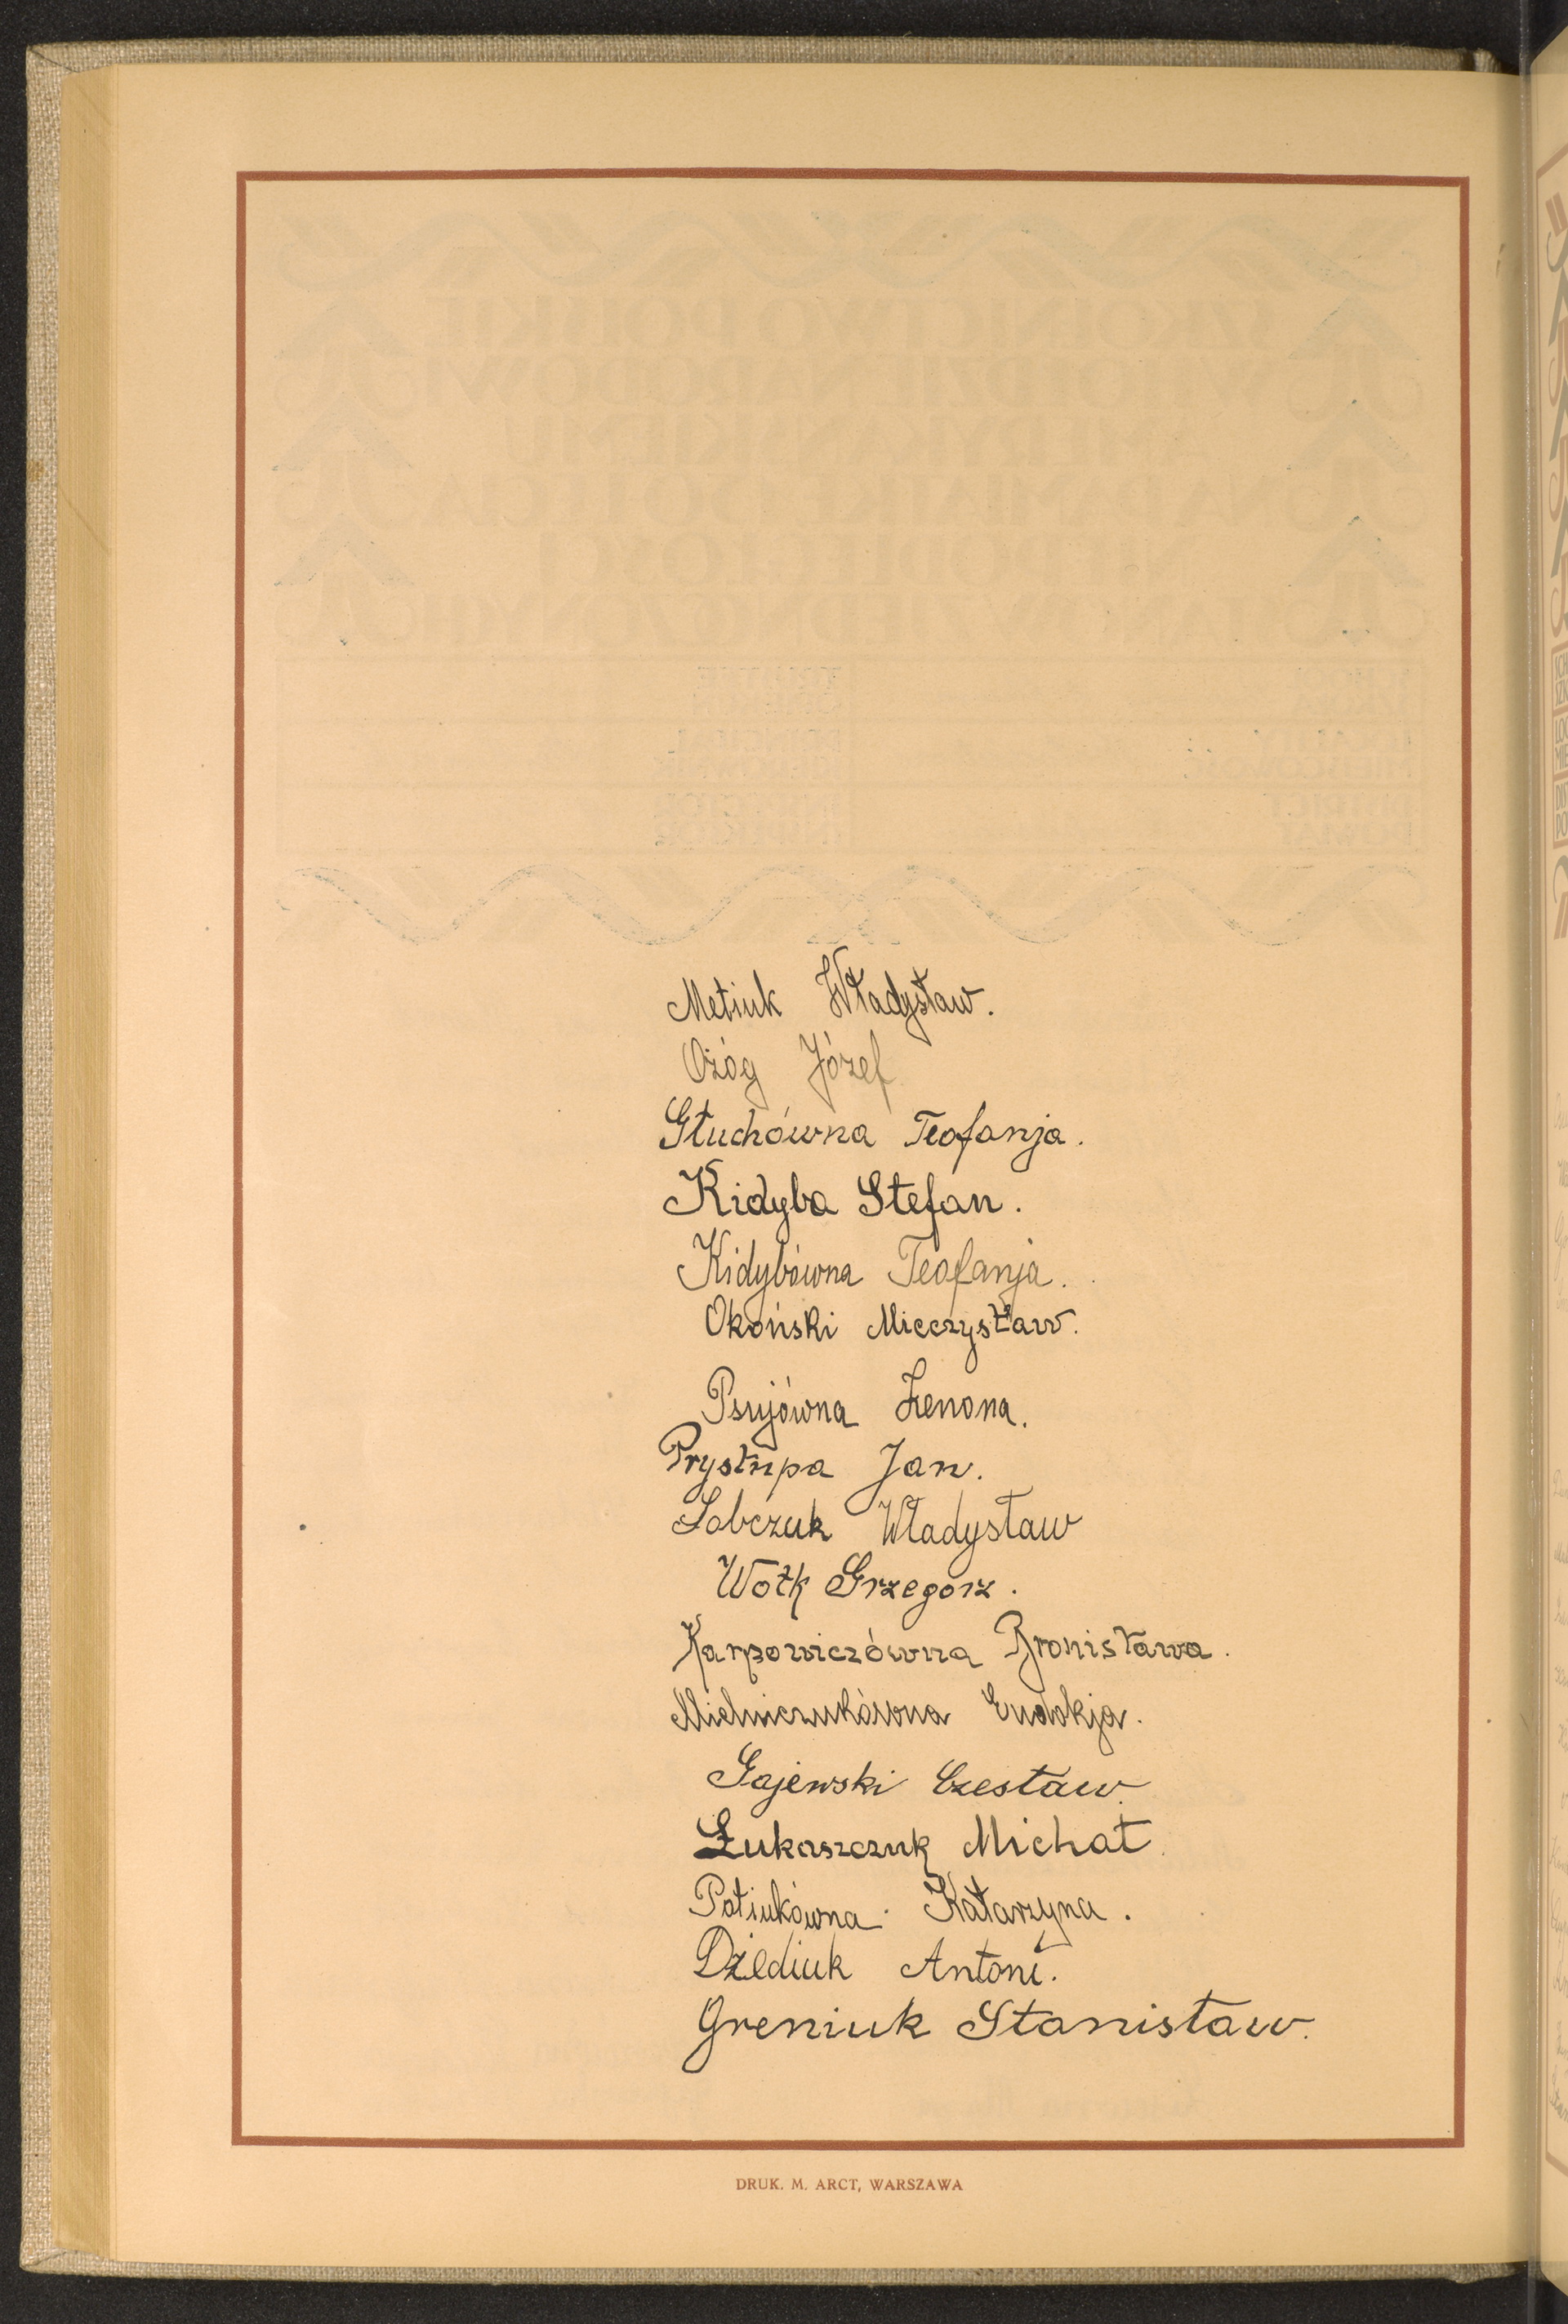 Metiuk Władysław.
Ożóg Józef
Głuchówna Teofanja.
Kidyba Stefan.
Kidybówna Teofanja.
Okoński Mieczysław.
Psujówna Zenona.
Prystupa Jan.
Sobczuk Władysław
Wołk Grzegorz.
Karpowiczówna Bronisława.
Mielniczukówna Eudokja.
Gajewski Czesław.
Łukaszczuk Michał.
Potiukówna Katarzyna.
Dziediuk Antoni.
Greniuk Stanisław.
DRUK. M. ARCT, WARSZAWA